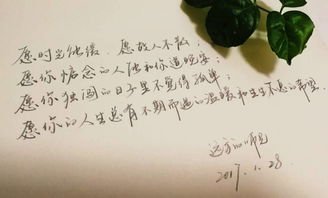 愿时光能缓，愿故人不散；
愿你惦念的人能和你道晚安；
愿你独闯的日子里不觉得孤单；
愿你的人生总有不期而遇的温暖和生生不息的希望。
远方的师兄
2017.1.28.